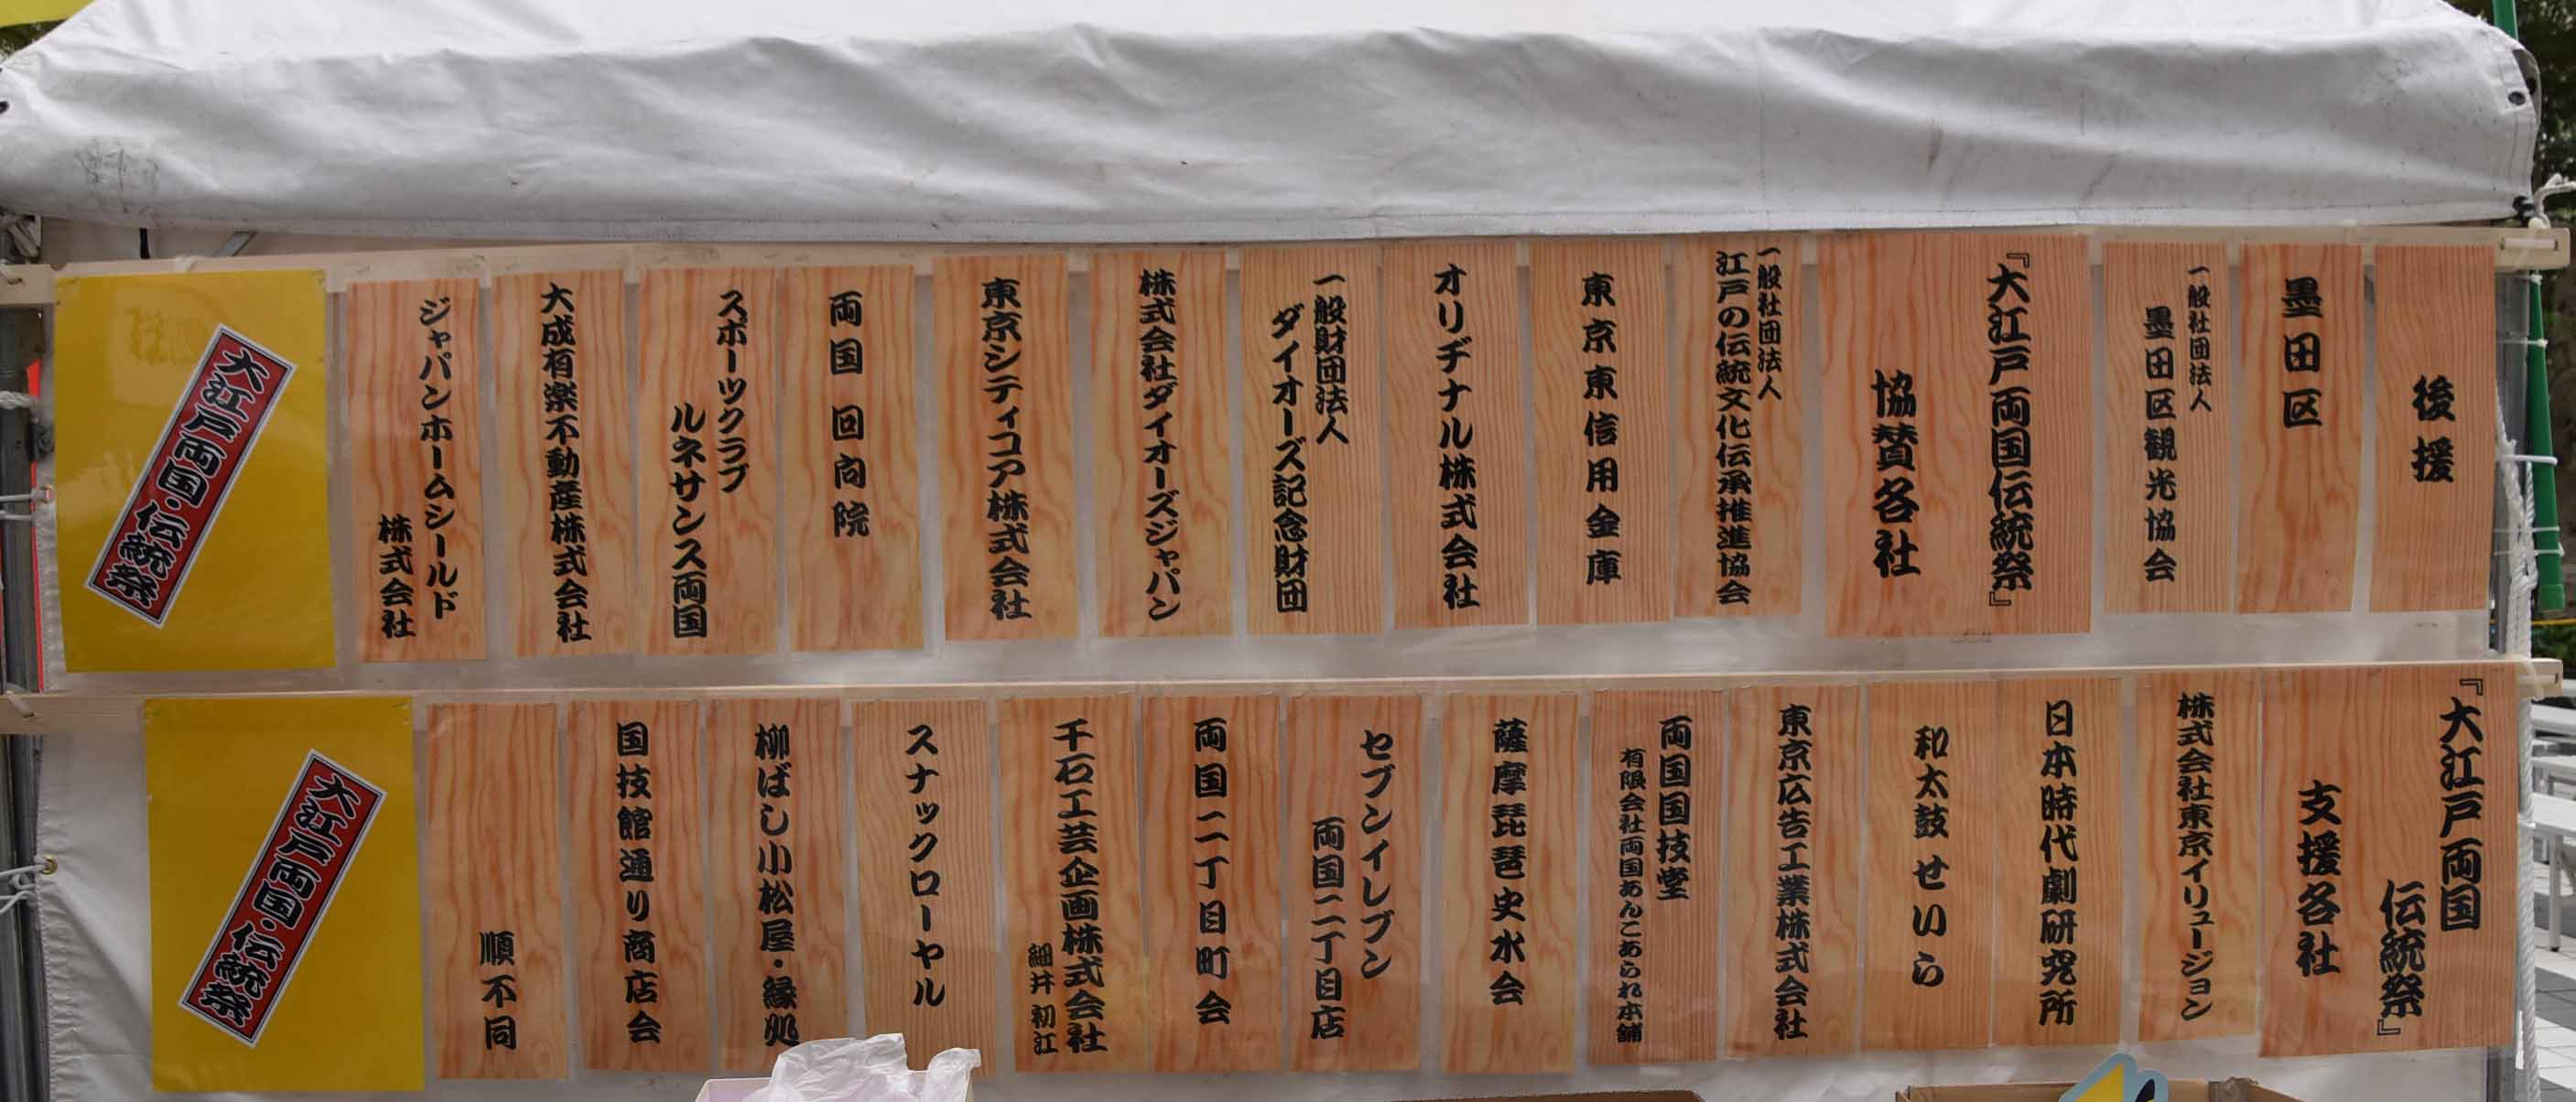 後援
墨田区
一般社団法人
墨田区観光協会
『大江戸両国伝統祭』
協賛各社
一般社団法人
江戸の伝統文化伝承推進協会
東京東信用金庫
オリヂナル株式会社
一般財団法人
ダイオーズ記念財団
株式会社ダイオーズジャパン
東京シティコア株式会社
両国 回向院
スポーツクラブ
ルネサンス両国
大成有楽不動産株式会社
ジャパンホームシールド
株式会社
大江戸両国・伝統祭
『大江戸両国
伝統祭』
支援各社
株式会社東京イリュージョン
日本時代劇研究所
和太鼓 せいら
東京広告工業株式会社
両国国技堂
有限会社両国あんこあられ本舗
薩摩琵琶史水会
セブンイレブン
両国二丁目店
両国二丁目町会
千石工芸企画株式会社
細井 初江
スナックローヤル
柳ばし小松屋・縁処
国技館通り商店会
順不同
大江戸両国・伝統祭